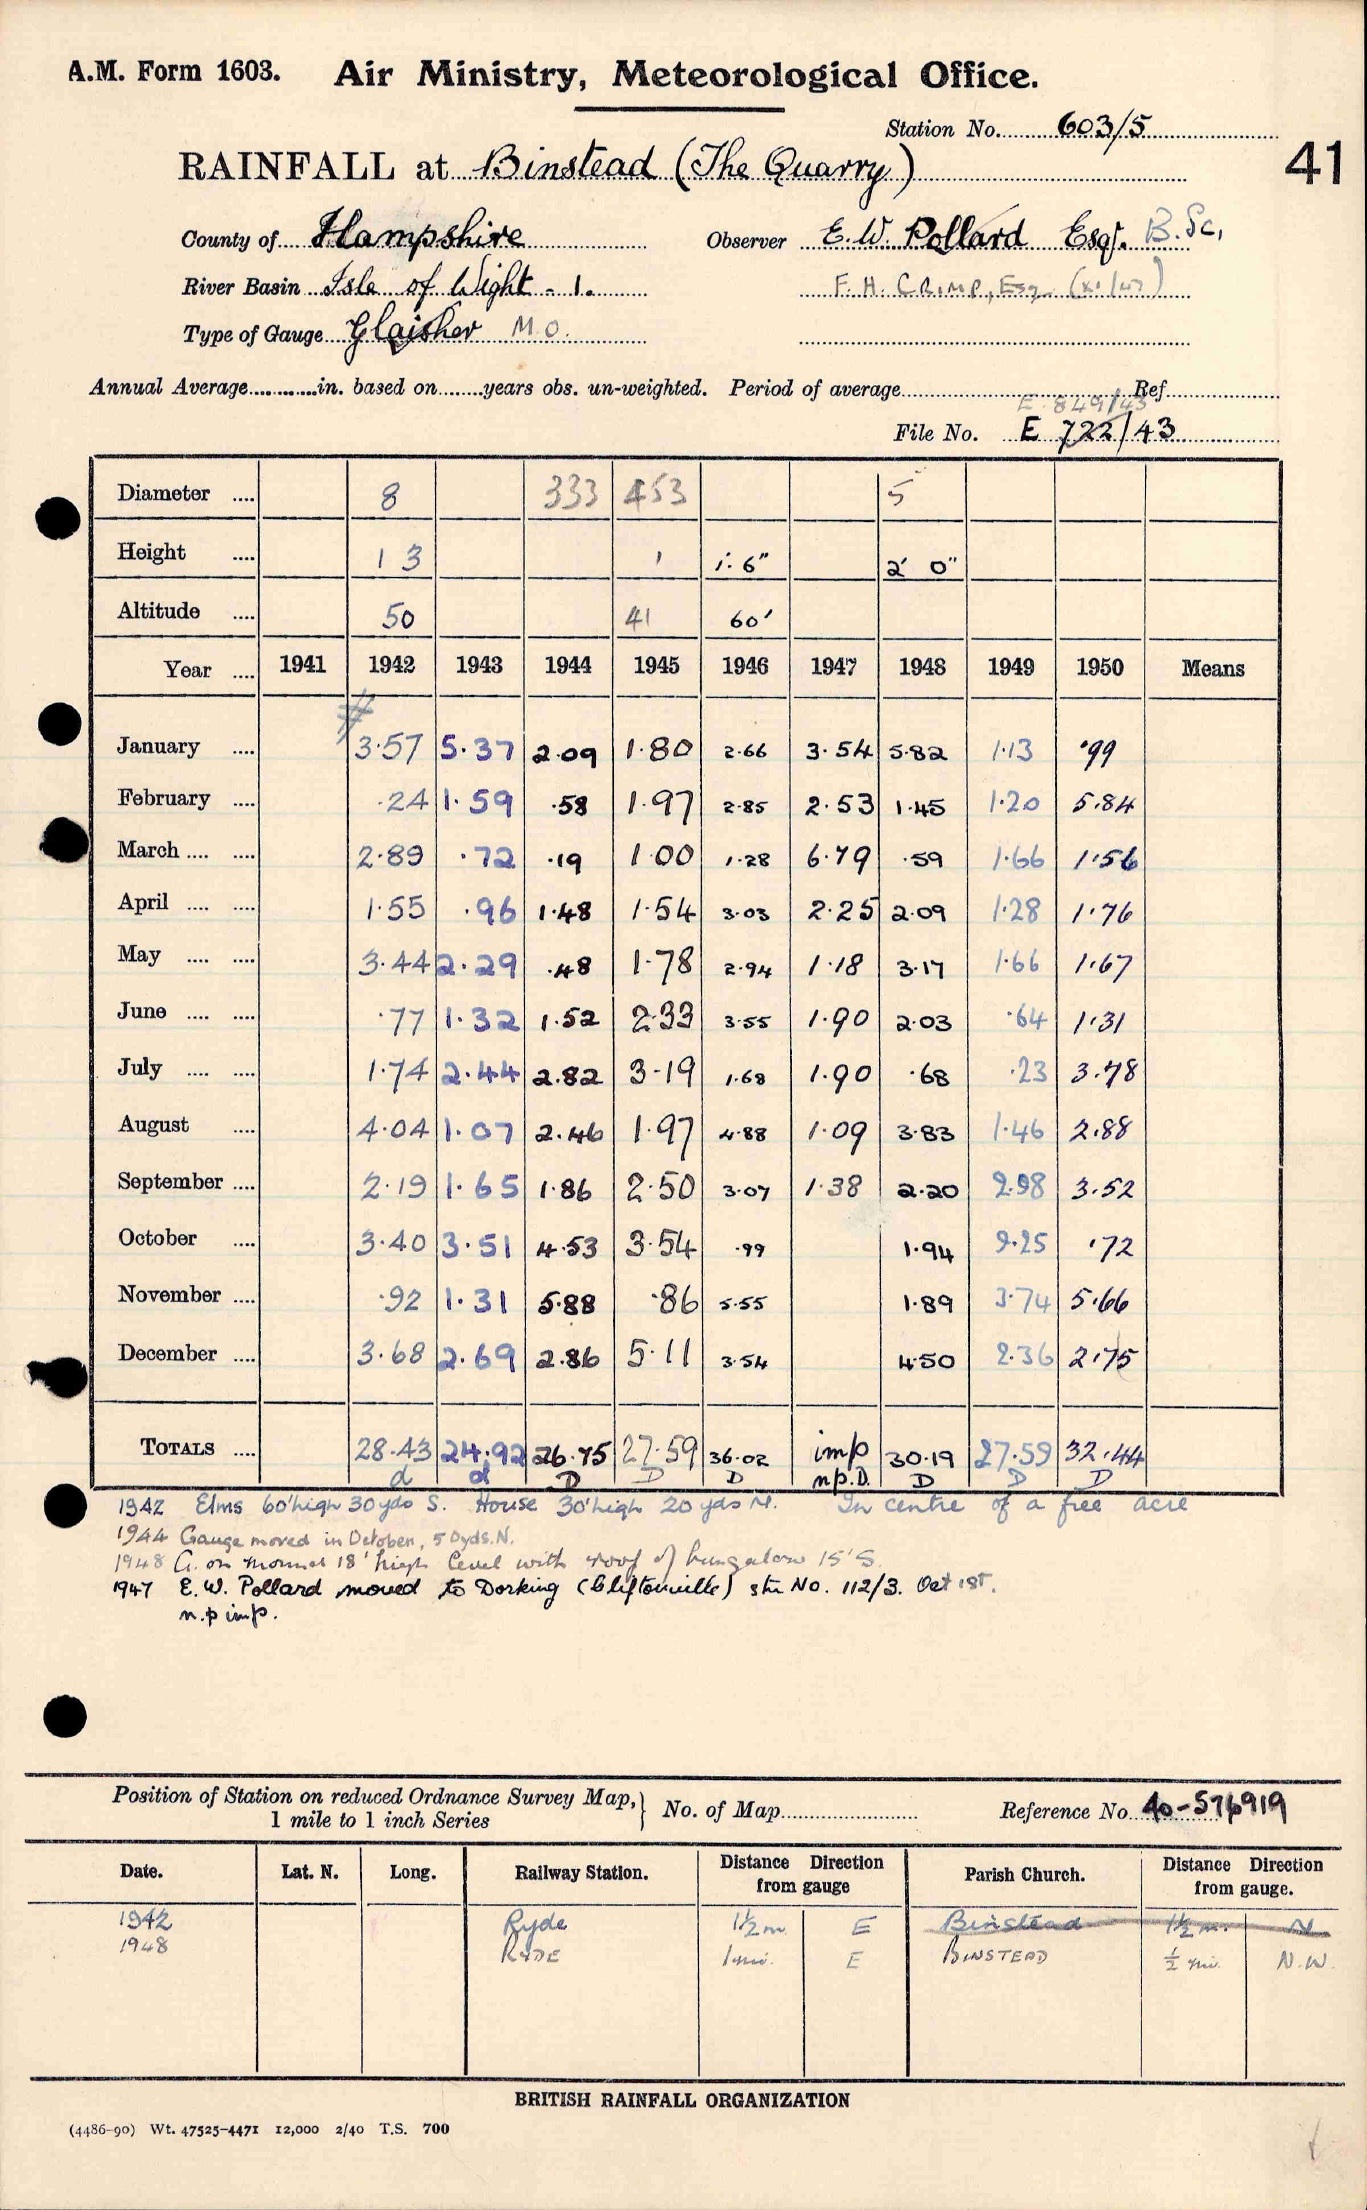 A.M. Form 1603. Air Ministry, Meteorological Office.
Station No. 603/5
41
RAINFALL at Binstead (The Quarry)
County of Hampshire Observer E. W. Pollard Esq. B.Sc,
River Basin Isle of Wight - 1. F. H. CRIMP, Esq. (xi/47)
Type of Gauge Glaisher M.O.
Annual Average............in. based on........years obs. un-weighted. Period of average................Ref................
E 849/43
File No. E 722/43
Diameter .... 8 333 453 5
Height .... 1 3 1 1·6" 2' 0"
Altitude .... 50 41 60'
Year .... 1941 1942 1943 1944 1945 1946 1947 1948 1949 1950 Means
January .... 3·57 5·37 2·09 1·80 2·66 3·54 5·82 1·13 ·99
February .... ·24 1·59 ·58 1·97 2·85 2·53 1·45 1·20 5·84
March .... .... 2·89 ·72 ·19 1·00 1·28 6·79 ·59 1·66 1·56
April .... .... 1·55 ·96 1·48 1·54 3·03 2·25 2·09 1·28 1·76
May .... .... 3·44 2·29 ·48 1·78 2·94 1·18 3·17 1·66 1·67
June .... .... ·77 1·32 1·52 2·33 3·55 1·90 2·03 ·64 1·31
July .... .... 1·74 2·44 2·82 3·19 1·68 1·90 ·68 ·23 3·78
August .... 4·04 1·07 2·46 1·97 4·88 1·09 3·83 1·46 2·88
September .... 2·19 1·65 1·86 2·50 3·07 1·38 2·20 2·98 3·52
October .... 3·40 3·51 4·53 3·54 ·99 1·94 9·25 ·72
November .... ·92 1·31 5·88 ·86 5·55 1·89 3·74 5·66
December .... 3·68 2·69 2·86 5·11 3·54 4·50 2·36 2·75
TOTALS .... 28·43 24·92 26·75 27·59 36·02 imp 30·19 27·59 32·44
d d D D D n.p.D. D D D
1942 Elms 60' high 30 yds S. House 30' high 20 yds N. In centre of a free acre
1944 Gauge moved in October, 50yds. N.
1948 G. on mound 18' high level with roof of bungalow 15' S.
1947 E. W. Pollard moved to Dorking (Cliftonville) stn No. 112/3. Oct 1st.
n.p imp.
Position of Station on reduced Ordnance Survey Map, 1 mile to 1 inch Series } No. of Map................ Reference No. 40-576919
Date. Lat. N. Long. Railway Station. Distance Direction from gauge Parish Church. Distance Direction from gauge.
1942 Ryde 1½ m. E Binstead 1½ m. N
1948 RYDE 1 mi. E BINSTEAD ½ mi. N.W.
BRITISH RAINFALL ORGANIZATION
(4486-90) Wt. 47525-4471 12,000 2/40 T.S. 700